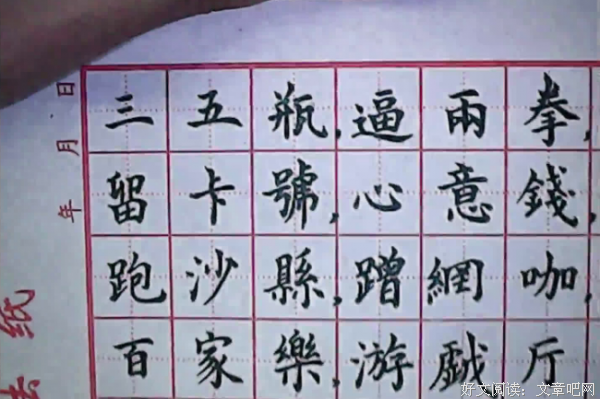 三五瓶,逼兩拳,
留卡號,心意錢,
跑沙縣,蹭網咖,
百家樂,游戲厅
年 月 日
纸
好文阅读:文章吧网